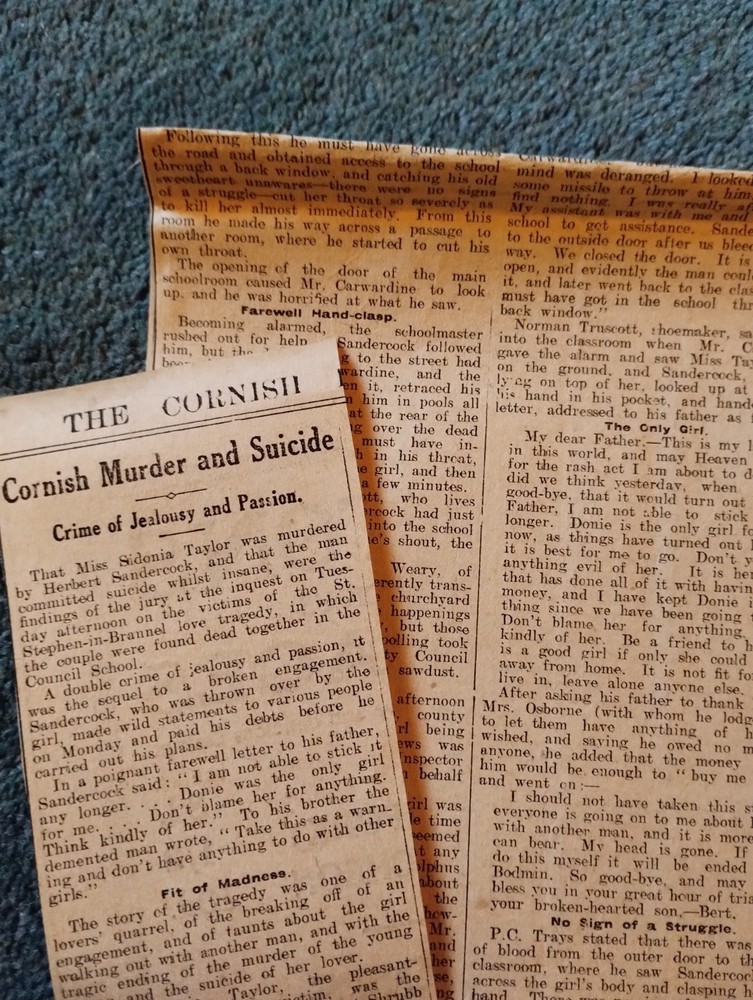 THE CORNISH
Cornish Murder and Suicide
Crime of Jealousy and Passion.
That Miss Sidonia Taylor was murdered
by Herbert Sandercock, and that the man
committed suicide whilst insane, were the
findings of the jury at the inquest on Tues-
day afternoon on the victims of the St.
Stephen-in-Brannel love tragedy, in which
the couple were found dead together in the
Council School.
A double crime of jealousy and passion, it
was the sequel to a broken engagement.
Sandercock, who was thrown over by the
girl, made wild statements to various people
on Monday and paid his debts before he
carried out his plans.
In a poignant farewell letter to his father,
Sandercock said: "I am not able to stick it
any longer. . . . Donie was the only girl
for me. . . . Don't blame her for anything.
Think kindly of her." To his brother the
demented man wrote, "Take this as a warn-
ing and don't have anything to do with other
girls."
Fit of Madness.
The story of the tragedy was one of a
lovers' quarrel, of the breaking off of an
engagement, and of taunts about the girl
walking out with another man, and with the
tragic ending of the murder of the young
and the suicide of her lover.
Taylor, the pleasant-
was the
Shrubb
Following this he must have gone across
the road and obtained access to the school
through a back window, and catching his old
sweetheart unawares—there were no signs
of a struggle—cut her throat so severely as
to kill her almost immediately. From this
room he made his way across a passage to
another room, where he started to cut his
own throat.
The opening of the door of the main
schoolroom caused Mr. Carwardine to look
up, and he was horrified at what he saw.
Farewell Hand-clasp.
Becoming alarmed, the schoolmaster
rushed out for help. Sandercock followed
him, but the
g to the street had
wardine, and the
en it, retraced his
m him in pools all
at the rear of the
g over the dead
must have in-
h in his throat,
e girl, and then
a few minutes.
ott, who lives
rcock had just
into the school
e's shout, the
Weary, of
erently trans-
churchyard
happenings
, but those
polling took
ty Council
sawdust.
afternoon
county
rl being
ews was
nspector
behalf
girl was
e time
eemed
t any
olphus
about
the
how-
Mr.
and
her
se,
Carwardine
mind was deranged. I looked
some missile to throw at him
find nothing. I was really af
My assistant was with me and
school to get assistance. Sande
to the outside door after us blee
way. We closed the door. It is
open, and evidently the man coul
it, and later went back to the clas
must have got in the school thr
back window."
Norman Truscott, shoemaker, sa
into the classroom when Mr. C
gave the alarm and saw Miss Tay
on the ground, and Sandercock,
lying on top of her, looked up at
his hand in his pocket, and hand
letter, addressed to his father as
The Only Girl.
My dear Father,—This is my l
in this world, and may Heaven
for the rash act I am about to d
did we think yesterday, when
good-bye, that it would turn out
Father, I am not able to stick
longer. Donie is the only girl fo
now, as things have turned out
it is best for me to go. Don't y
anything evil of her. It is he
that has done all of it with havin
money, and I have kept Donie i
thing since we have been going
Don't blame her for anything
kindly of her. Be a friend to h
is a good girl if only she could
away from home. It is not fit fo
live in, leave alone anyone else.
After asking his father to thank
Mrs. Osborne (with whom he lodg
to let them have anything of h
wished, and saying he owed no m
anyone, he added that the money
him would be enough to "buy me
and went on:—
I should not have taken this s
everyone is going on to me about
with another man, and it is more
can bear. My head is gone. If
do this myself it will be ended
Bodmin. So good-bye, and may
bless you in your great hour of tria
your broken-hearted son,—Bert.
No Sign of a Struggle.
P.C. Trays stated that there was
of blood from the outer door to th
classroom, where he saw Sanderco
across the girl's body and clasping h
hand.